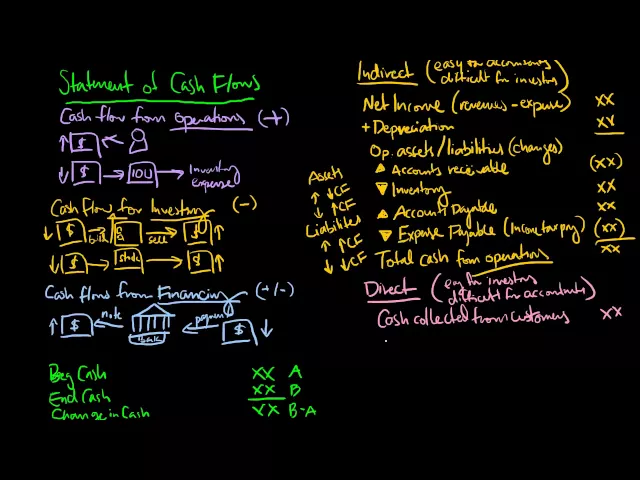 Statement of Cash Flows
Cash flow from operations (+)
↑ $
↓ $ → IOU → Inventory
expense
Cash flow for Investing (-)
↓ $ build sell $ ↑
↓ $ → stocks → $ ↑
Cash flows from Financing (+/-)
↑ $ note Bank payment $ ↓
Beg Cash XX A
End Cash XX B
Change in Cash XX B-A
Indirect (easy for accountants
difficult for investors)
Net Income (revenues - expense) XX
+ Depreciation XX
Op. assets/liabilities (changes)
▲ Accounts receivable (XX)
▼ Inventory XX
▲ Accounts Payable XX
▼ Expense Payable (Income tax pay) (XX)
Total cash from operations XX
Assets
↑ ↓CF
↓ ↑CF
Liabilites
↑ ↑CF
↓ ↓CF
Direct (easy for investors
difficult for accountants)
Cash collected from customers XX